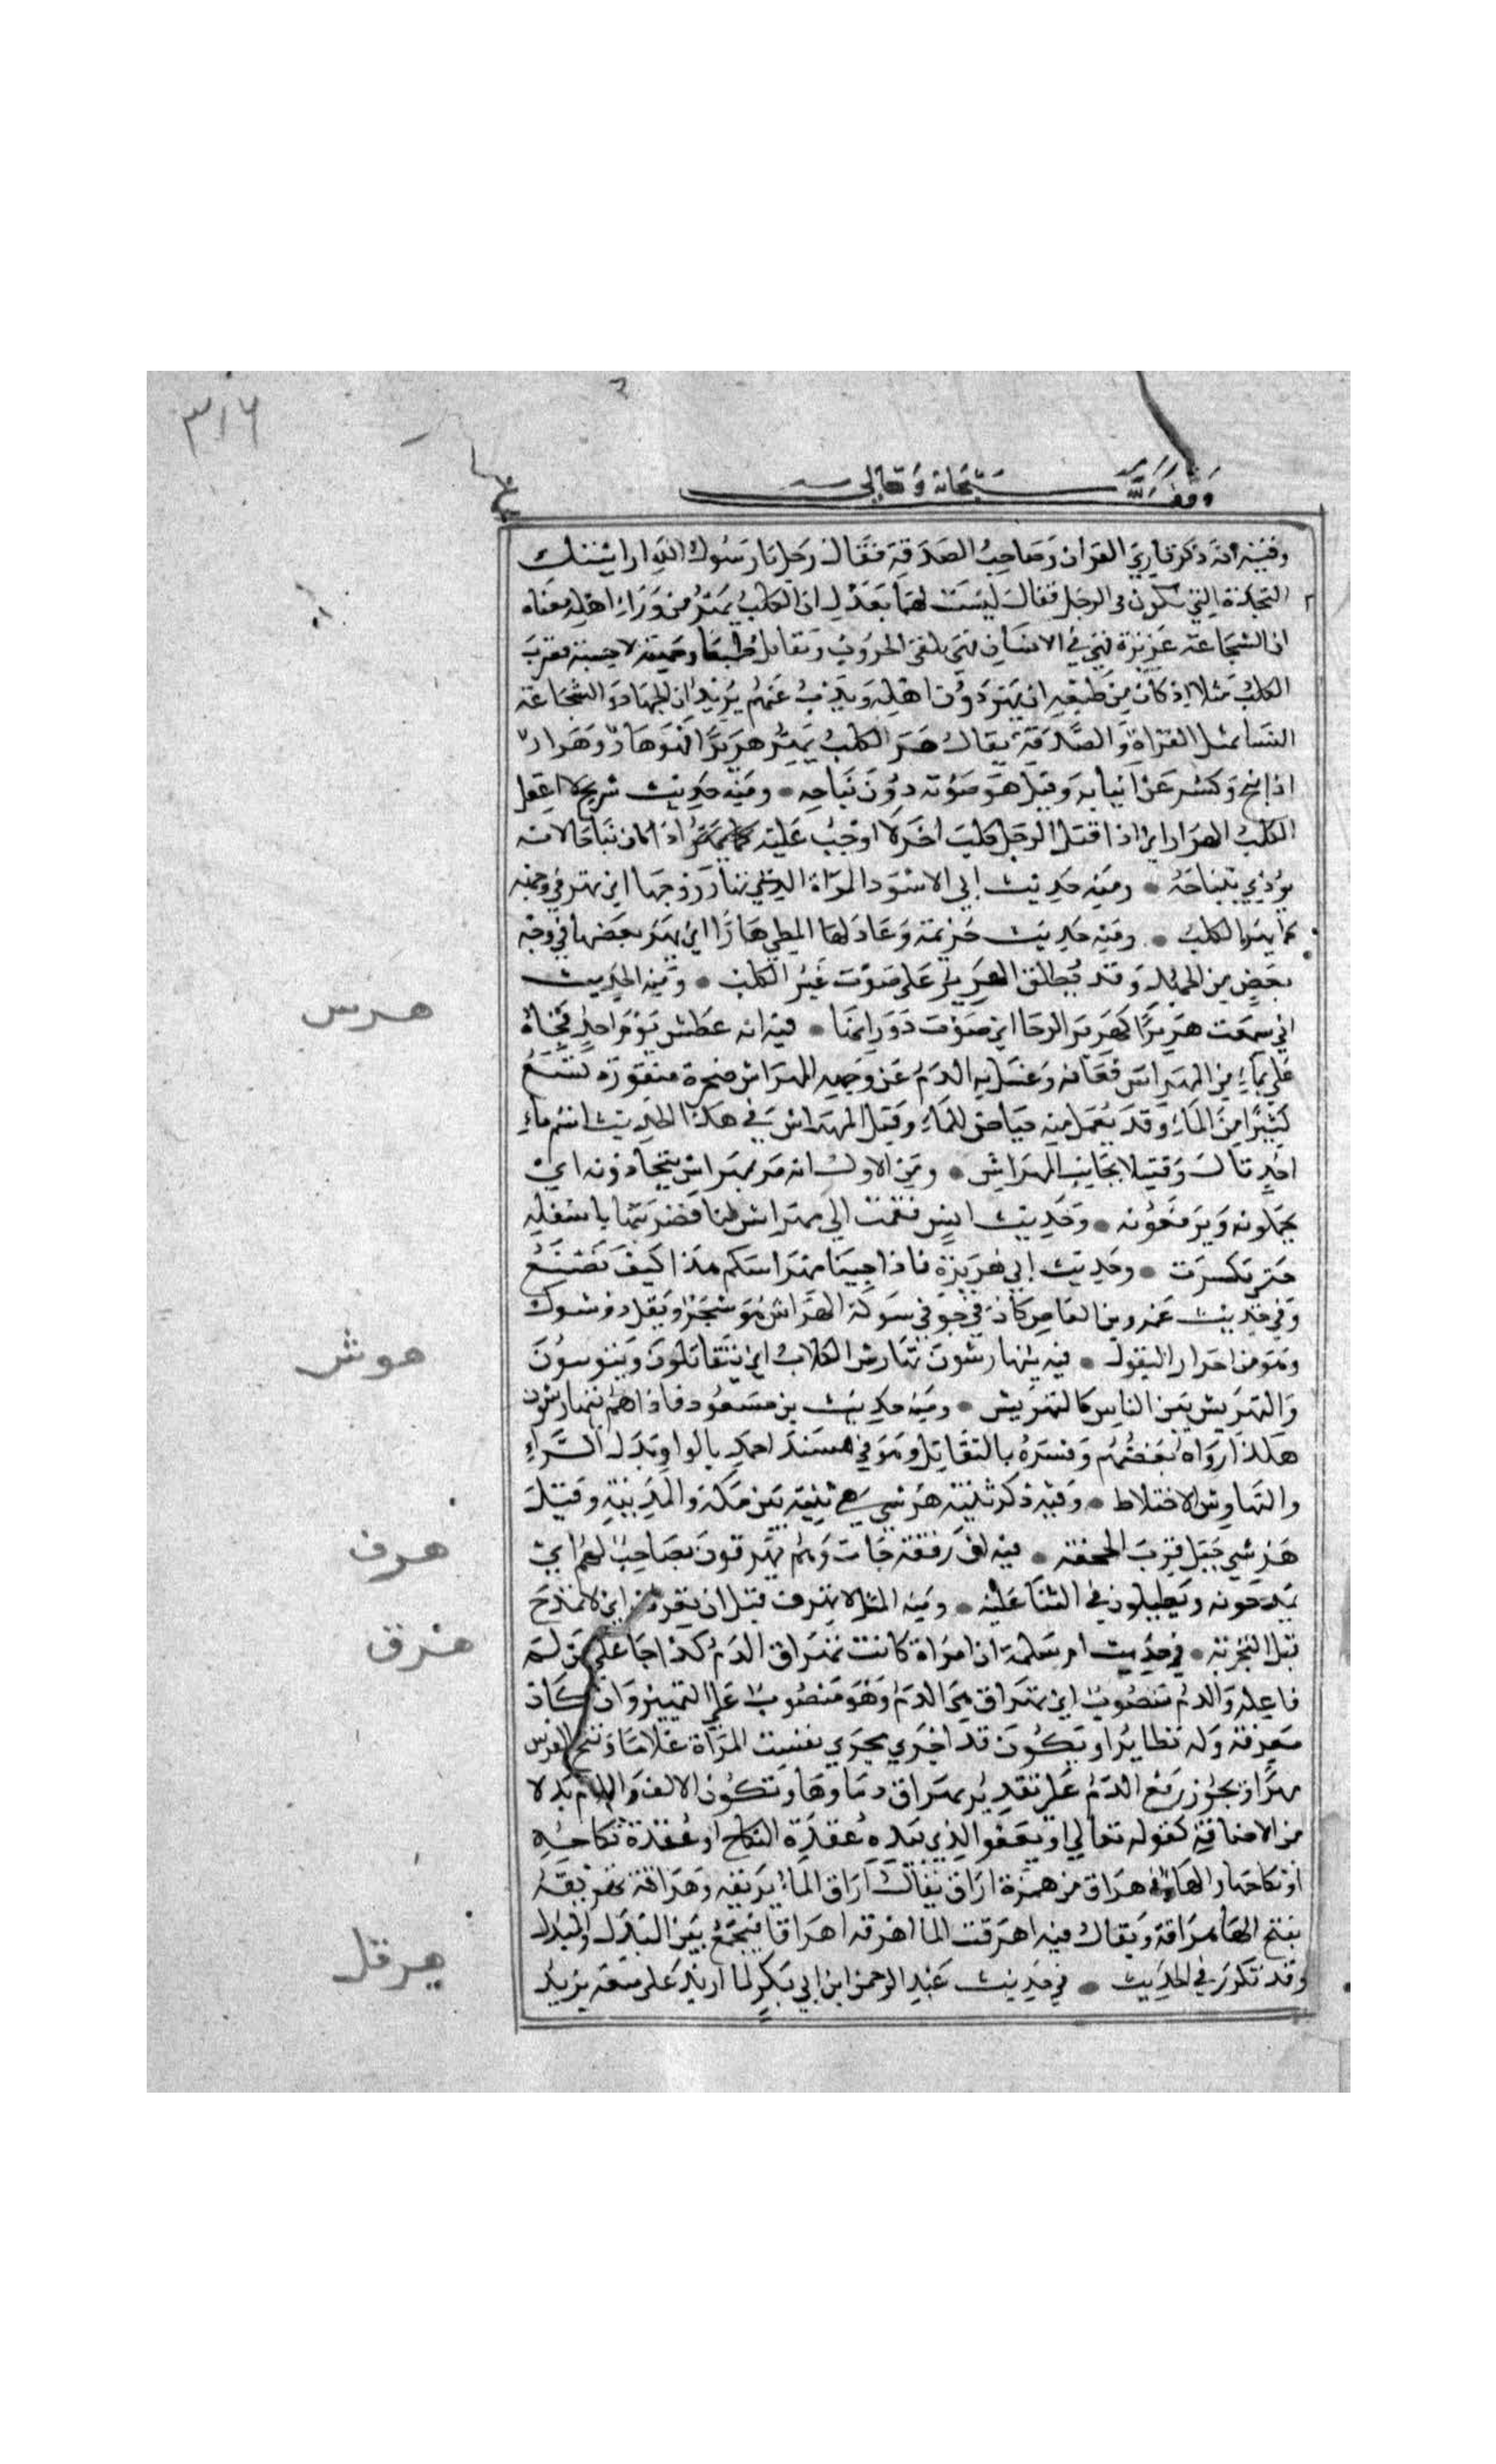 ٣١٦
وقف لله سبحانه وتعالى
وفيه انه ذكر قاري القران وصاحب الصدقة فقال رجل يا رسول الله ارايتك
النجدة التي تكون في الرجل فقال ليست لهما بعدل ان الكلب يهر من وراء اهله معناه
ان الشجاعة غريزة في الانسان فهي يلقى الحروب ويقاتل طبعا وحمية لا حسبة فضرب
الكلب مثلا اذ كان من طبعه ان يهر دون اهله ويذب عنهم يريد ان الجهاد والشجاعة
ليسا بمثل القراة والصدقة يقال هر الكلب يهر هريرا فهو هار وهرار
اذا نبح وكشر عن انيابه وقيل هو صوته دون نباحه ومنه حديث شريح لا اعقل
الكلب الهرار اي اذا قتل الرجل كلب اخر لا اوجب عليه اذا كان نباحا لانه
يؤذي بنباحه ومنه حديث ابي الاسود المراة التي تهار زوجها اي تهر في وجهه
كما يهر الكلب ومنه حديث خزيمة وعاد لها المطي هارا اي يهر بعضها في وجه
بعض من الجهد وقد يطلق الهرير على صوت غير الكلب ومنه الحديث
اني سمعت هريرا كهرير الرحا اي صوت دورانها فيه انه عطش يوم احد فجاه
هرس
علي بماء من المهراس فعافه وغسل به الدم عن وجهه المهراس صخرة منقورة تسع
كثيرا من الماء وقد يعمل منه حياض للماء وقيل المهراس في هذا الحديث اسم ماء
احد قال وقتيلا بجانب المهراس ومن الاول انه مر بمهراس يتجاذونه اي
يحملونه ويرفعونه وحديث انس فقمت الى مهراس لنا فضربتها باسفله
حتى تكسرت وحديث ابي هريرة فاذا جينا مهراسكم هذا كيف نصنع
وفي حديث عمرو بن العاص كان في جوفي شوكة الهراس هو شجر او بقل ذو شوك
وهو من احرار البقول فيه يتهارشون تهارش الكلاب اي يتقاتلون ويتوثبون
هوش
والتهريش بين الناس كالتحريش ومنه حديث بن مسعود فاذا هم يتهارشون
هكذا رواه بعضهم وفسره بالتقاتل وهو في مسند احمد بالواو بدل الراء
والتهاوش الاختلاط وفيه ذكر ثنية هرشى هي ثنية بين مكة والمدينة وقيل
هرشى جبل قرب الجحفة فيه ان رفقة جات وهم يهرفون بصاحب لهم اي
هرف
يمدحونه ويطيلون في الثنا عليه ومنه المثل لا تهرف قبل ان تعرف اي لا تمدح
قبل التجربة في حديث ام سلمة ان امراة كانت تهراق الدم كذا جا على من لم
هرق
فاعله والدم منصوب اي تهراق هي الدم وهو منصوب على التمييز وان كان
معرفة وله نظاير او يكون قد اجري مجرى نفست المراة غلاما ونتج الفرس
مهرا ويجوز رفع الدم على تقدير تهراق دماوها وتكون الالف واللام بدلا
من الاضافة كقوله تعالى او يعفو الذي بيده عقدة النكاح او عقدة نكاحه
او نكاحها والهاء في هراق من همزة اراق يقال اراق الماء يريقه وهراقه يهريقه
بفتح الهاء هراقة ويقال فيه اهرقت الما اهرقه اهراقا فيجمع بين البدل والمبدل
وقد تكرر في الحديث في حديث عبد الرحمن ابن ابي بكر لما اريد على بيعة يزيد
هرقل